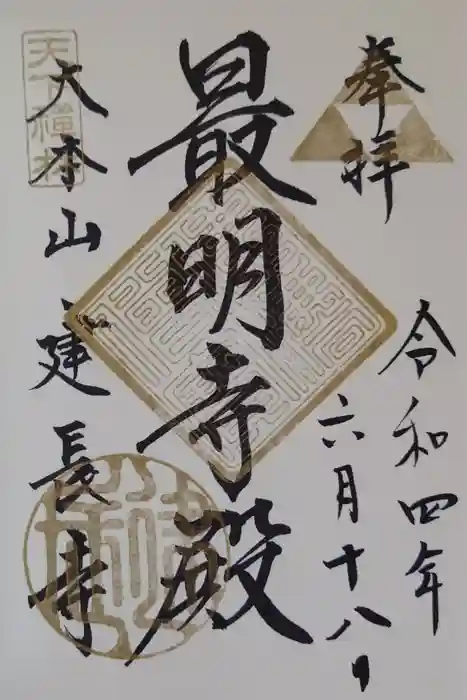 奉拝
令和四年
六月十八日
最明寺殿
大本山建長寺
天下禅林